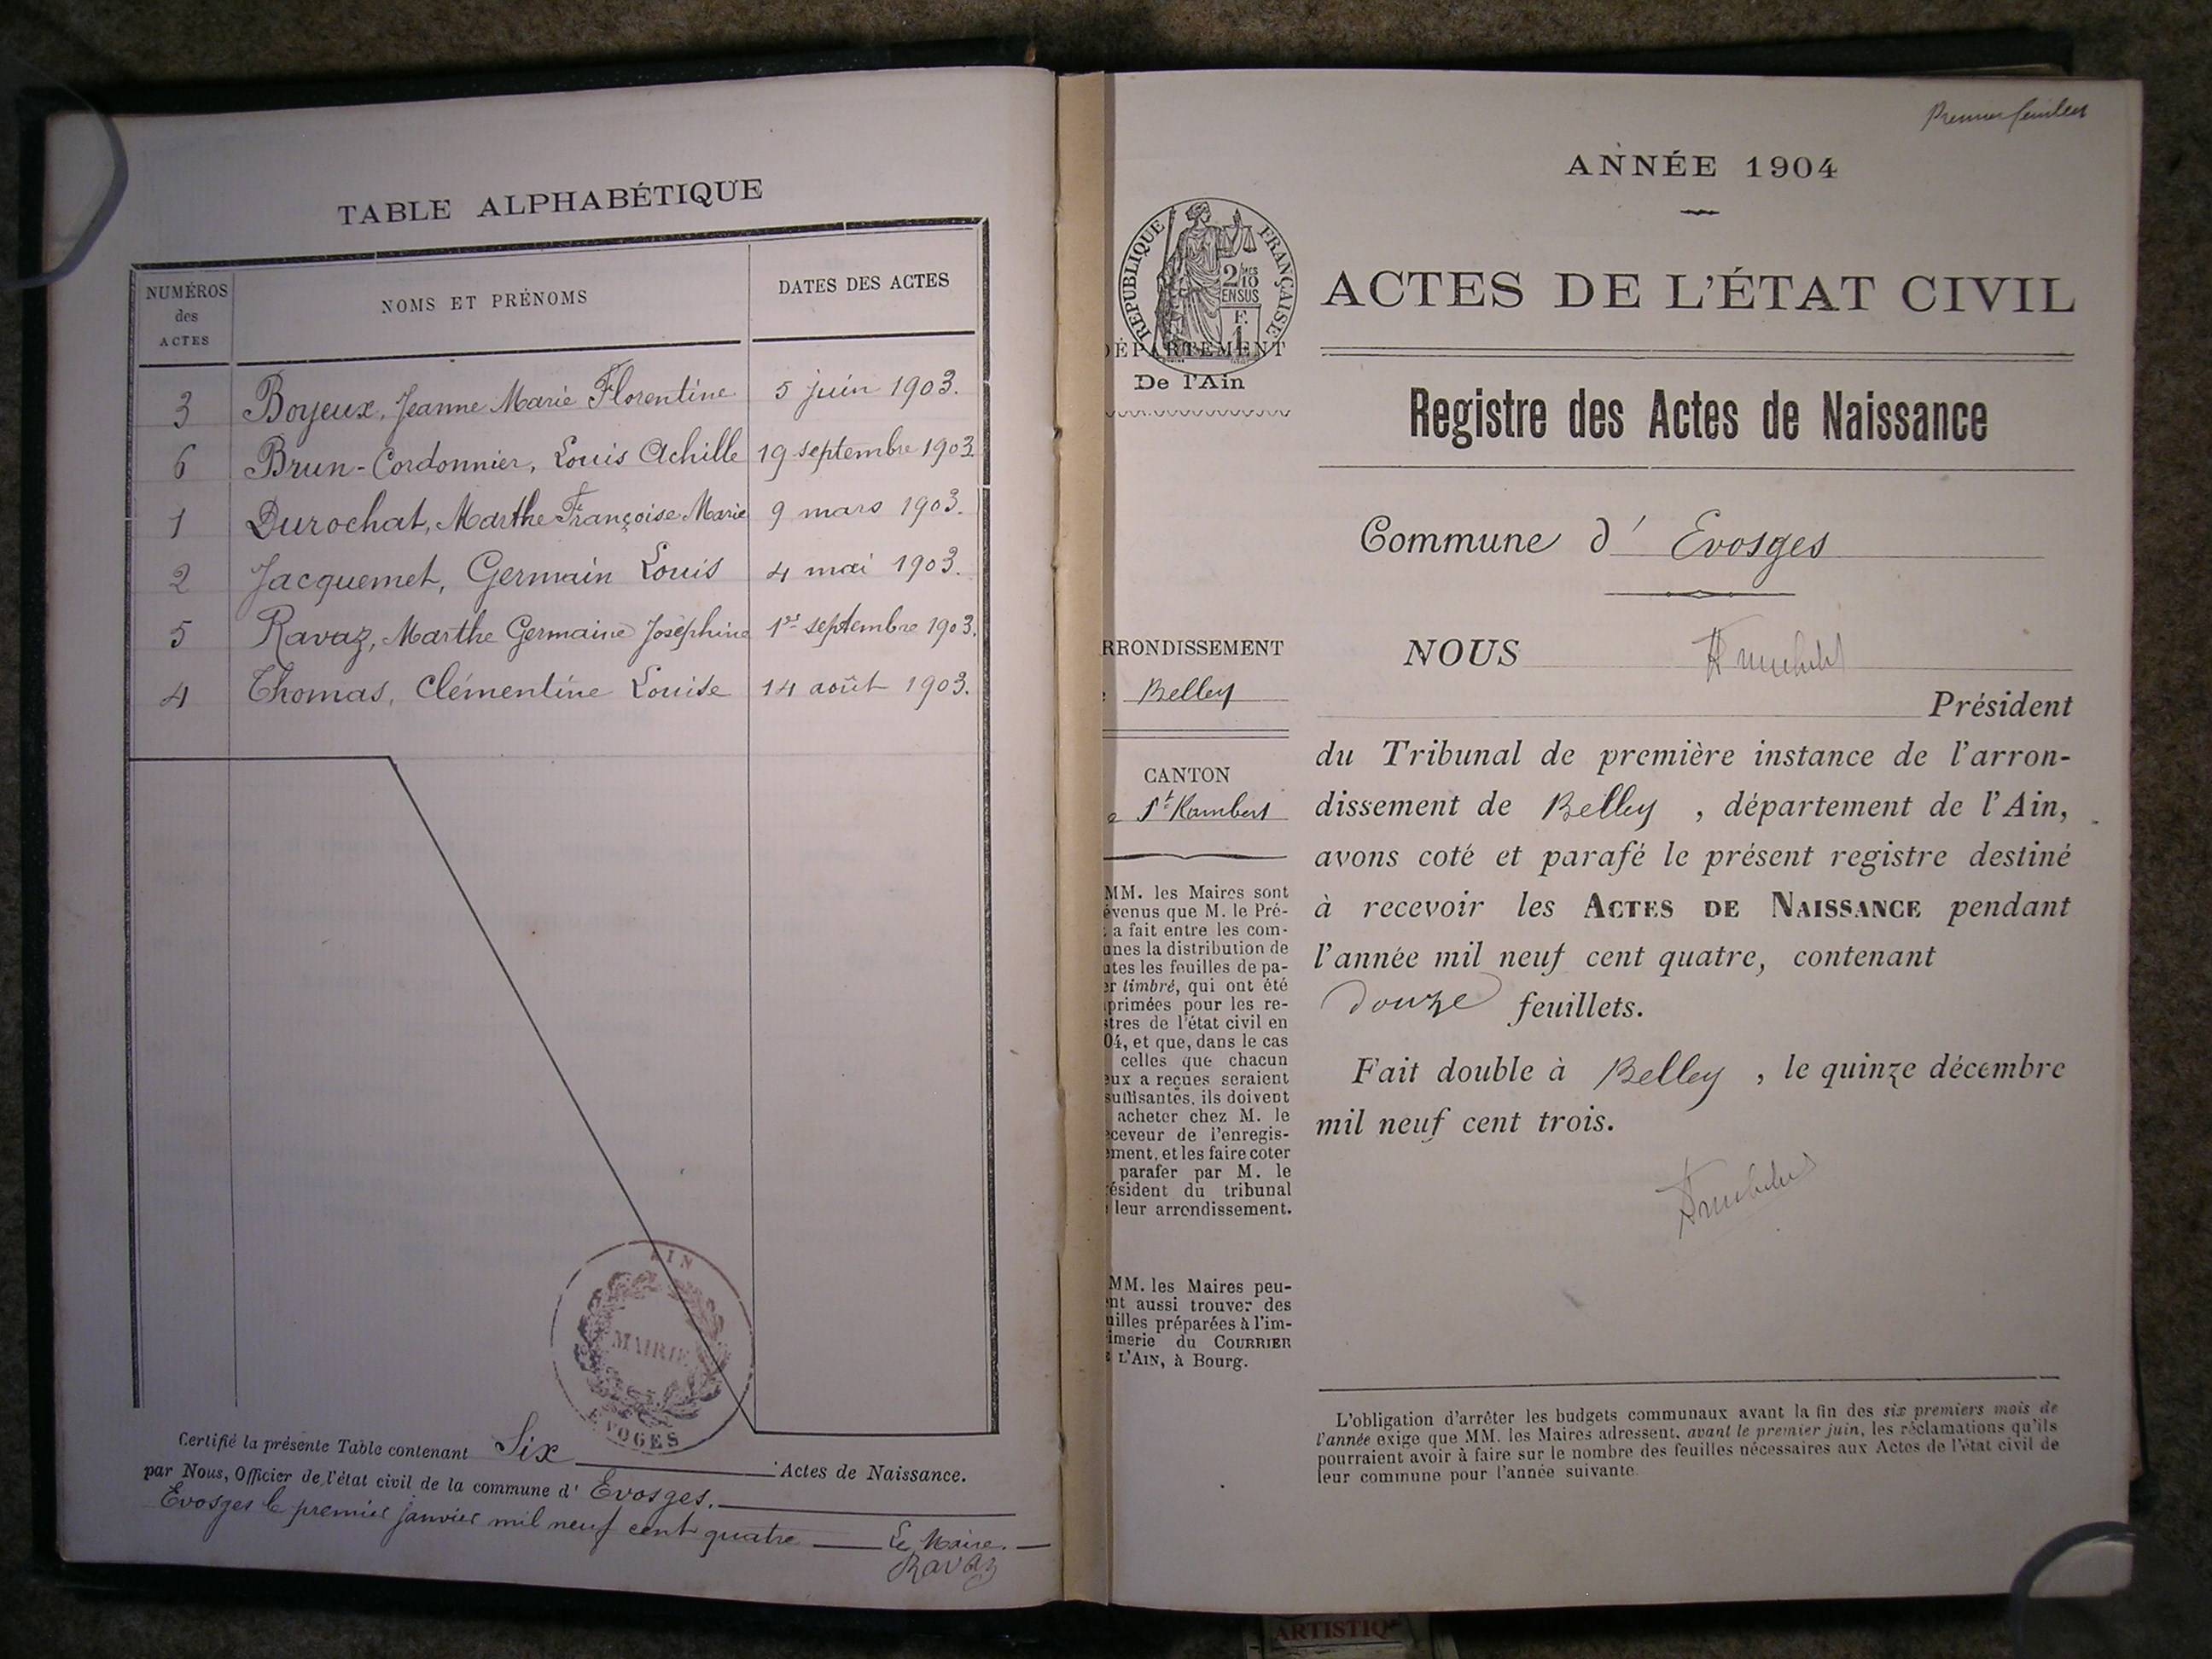 TABLE ALPHABÉTIQUE
NUMÉROS
des
ACTES
NOMS ET PRÉNOMS
DATES DES ACTES
3 Boyeux, Jeanne Marie Florentine 5 juin 1903.
6 Brun-Cordonnier, Louis Achille 19 septembre 1903
1 Durochat, Marthe Françoise Marie 9 mars 1903.
2 Jacquemet, Germain Louis 4 mai 1903.
5 Ravaz, Marthe Germaine Joséphine 1er septembre 1903.
4 Thomas, Clémentine Louise 14 août 1903.
AIN
MAIRIE
EVOGES
Certifié la présente Table contenant Six Actes de Naissance.
par Nous, Officier de l'état civil de la commune d' Evosges.
Evosges le premier janvier mil neuf cent quatre Le Maire.
Ravaz
Premier feuillet
ANNÉE 1904
RÉPUBLIQUE FRANÇAISE
2/10
EN SUS
F.
1
ACTES DE L'ÉTAT CIVIL
DÉPARTEMENT
De l'Ain
Registre des Actes de Naissance
Commune d' Evosges
RRONDISSEMENT
Belley
CANTON
e St Rambert
MM. les Maires sont
évenus que M. le Pré-
t a fait entre les com-
unes la distribution de
utes les feuilles de pa-
er timbré, qui ont été
primées pour les re-
stres de l'état civil en
04, et que, dans le cas
celles que chacun
eux a reçues seraient
suffisantes, ils doivent
acheter chez M. le
eceveur de l'enregis-
ement, et les faire coter
parafer par M. le
ésident du tribunal
leur arrondissement.
MM. les Maires peu-
ent aussi trouver des
uilles préparées à l'im-
imerie du COURRIER
E L'AIN, à Bourg.
NOUS
Président
du Tribunal de première instance de l'arron-
dissement de Belley , département de l'Ain,
avons coté et parafé le présent registre destiné
à recevoir les ACTES DE NAISSANCE pendant
l'année mil neuf cent quatre, contenant
douze feuillets.
Fait double à Belley , le quinze décembre
mil neuf cent trois.
L'obligation d'arrêter les budgets communaux avant la fin des six premiers mois de
l'année exige que MM. les Maires adressent, avant le premier juin, les réclamations qu'ils
pourraient avoir à faire sur le nombre des feuilles nécessaires aux Actes de l'état civil de
leur commune pour l'année suivante.
ARTISTIQ